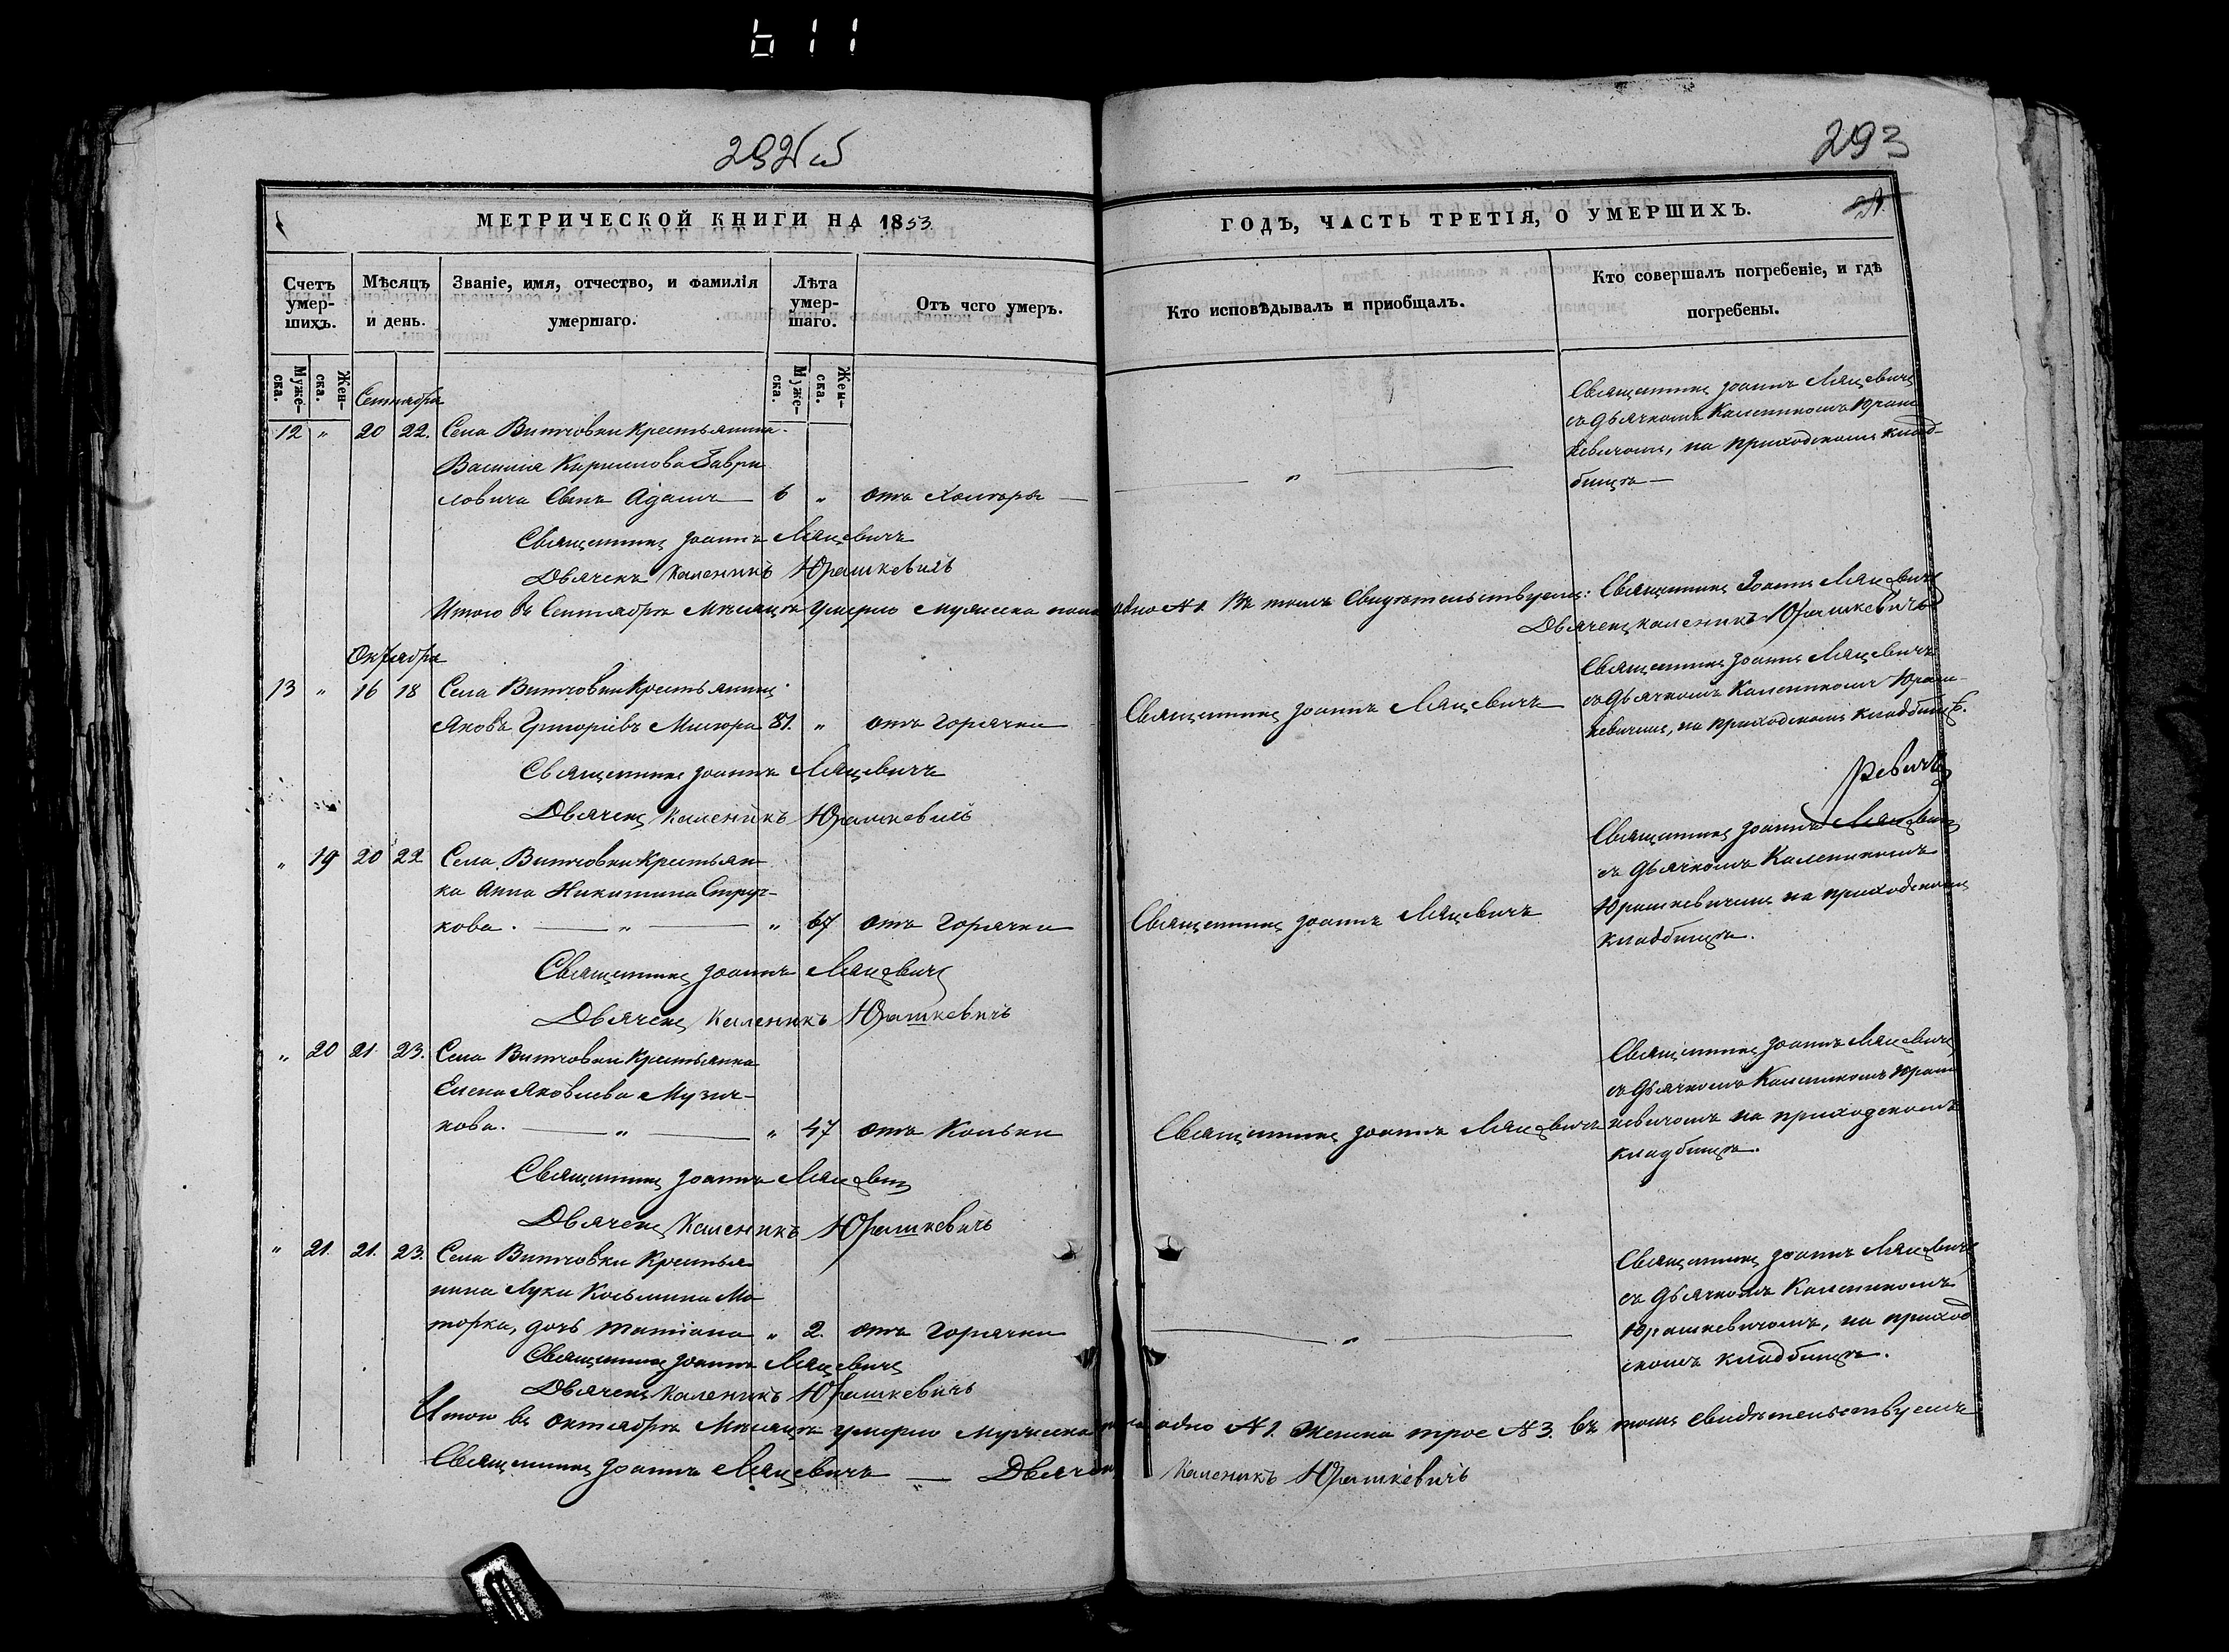 611
293
МЕТРИЧЕСКОЙ КНИГИ НА 1853
ГОДЪ, ЧАСТЬ ТРЕТІЯ, О УМЕРШИХЪ.
Счетъ умер-шихъ.
Мѣсяцъ и день.
Званіе, имя, отчество, и фамилія умершаго.
Лѣта умер-шаго.
Отъ чего умеръ.
Кто исповѣдывалъ и приобщалъ.
Кто совершалъ погребеніе, и гдѣ погребены.
Муже-ска.
Жен-ска.
Муже-ска.
Жен-ска.
Сентября
12 " 20 22. Села Витчовки Крестьянина
Василія Кирилова Гаври
ловича Сынъ Адамъ 6 " отъ Холеры — "
Священникъ Іоаннъ Ляцевичъ
съ дьячкомъ Калеником Юраш
кевичомъ, на приходскомъ клад-
бищѣ —
Священникъ Іоаннъ Ляцевичъ
Дьячекъ Каленикъ Юрашкевичъ
Итого въ Сентябрѣ Мѣсяцѣ умерло мужеска пола одно №1. Въ томъ Свидѣтельствуемъ: Священникъ Іоаннъ Ляцевичъ
Дьячекъ Каленикъ Юрашкевичъ
Октября
13 " 16 18 Села Витчовки Крестьянинъ
Яковъ Григоріевъ Мисюра 81. " отъ горячки
Священникъ Іоаннъ Ляцевичъ
Священникъ Іоаннъ Ляцевичъ
съ дьячкомъ Калеником Юраш-
кевичемъ, на приходскомъ кладбищѣ.
Священникъ Іоаннъ Ляцевичъ
Дьячекъ Каленикъ Юрашкевичъ
" 19 20 22 Села Витчовки Крестьян-
ка Анна Никитина Струч-
кова. — " — " 67 отъ горячки
Священникъ Іоаннъ Ляцевичъ
Священникъ Іоаннъ Ляцевичъ
съ дьячкомъ Каленикомъ
Юрашкевичемъ на приходскомъ
кладбищѣ.
Священникъ Іоаннъ Ляцевичъ
Дьячекъ Каленикъ Юрашкевичъ
" 20 21. 23. Села Витчовки Крестьянка
Елена Яковлева Музич-
кова. — " — " 47 отъ Кольки
Священникъ Іоаннъ Ляцевичъ
Священникъ Іоаннъ Ляцевичъ
съ дьячкомъ Каленикомъ Юраш
кевичомъ на приходскомъ
кладбищѣ.
Священникъ Іоаннъ Ляцевичъ
Дьячекъ Каленикъ Юрашкевичъ
" 21. 21. 23. Села Витчовки Крестья
нина Луки Козьмина Мо
торка, дочь Татіана " 2. отъ горячки — "
Священникъ Іоаннъ Ляцевичъ
съ дьячкомъ Каленикомъ
Юрашкевичомъ, на приход
скомъ кладбищѣ.
Священникъ Іоаннъ Ляцевичъ
Дьячекъ Каленикъ Юрашкевичъ
Итого въ Октябрѣ Мѣсяцѣ умерло мужеска пола одно №1. Женска трое №3. въ томъ свидѣтельствуемъ
Священникъ Іоаннъ Ляцевичъ — Дьячекъ Каленикъ Юрашкевичъ